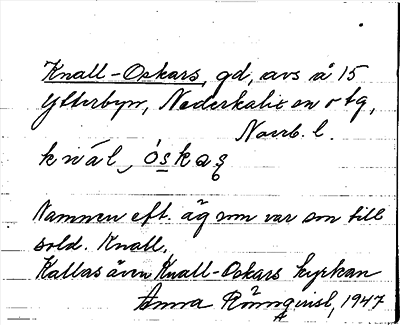 Knall-Oskars, gd, avs å 15
Ytterbyn, Nederkalix en o tg,
Norrb. l.
knál, óskaʂ
Namnen eft. äg som var son till
sold. Knall.
Kallas även Knall-Oskars kyrkan
Anna Rönnqvist, 1947